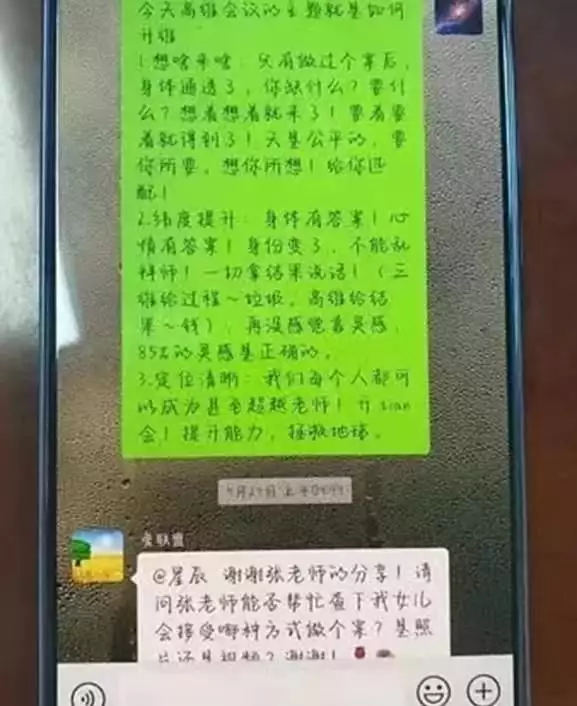 今天高维会议的主题就是如何
升维
1.想啥来啥：只有做过个案后，
身体通透了，你缺什么？要什
么？想着想着就来了！要着要
着就得到了！天是公平的，要
你所要，想你所想！给你匹
配！
2.纬度提升：身体有答案！心
情有答案！身份变了，不能乱
拜师！一切拿结果说话！（三
维给过程~垃圾，高维给结
果~钱），再没感觉看灵感，
85%的灵感是正确的。
3.定位清晰：我们每个人都可
以成为甚至超越老师！开tian
会！提升能力，拯救地球。
@星辰 谢谢张老师的分享！请
问张老师能否帮忙查下我女儿
会接受哪种方式做个案？是照
片还是视频？谢谢！